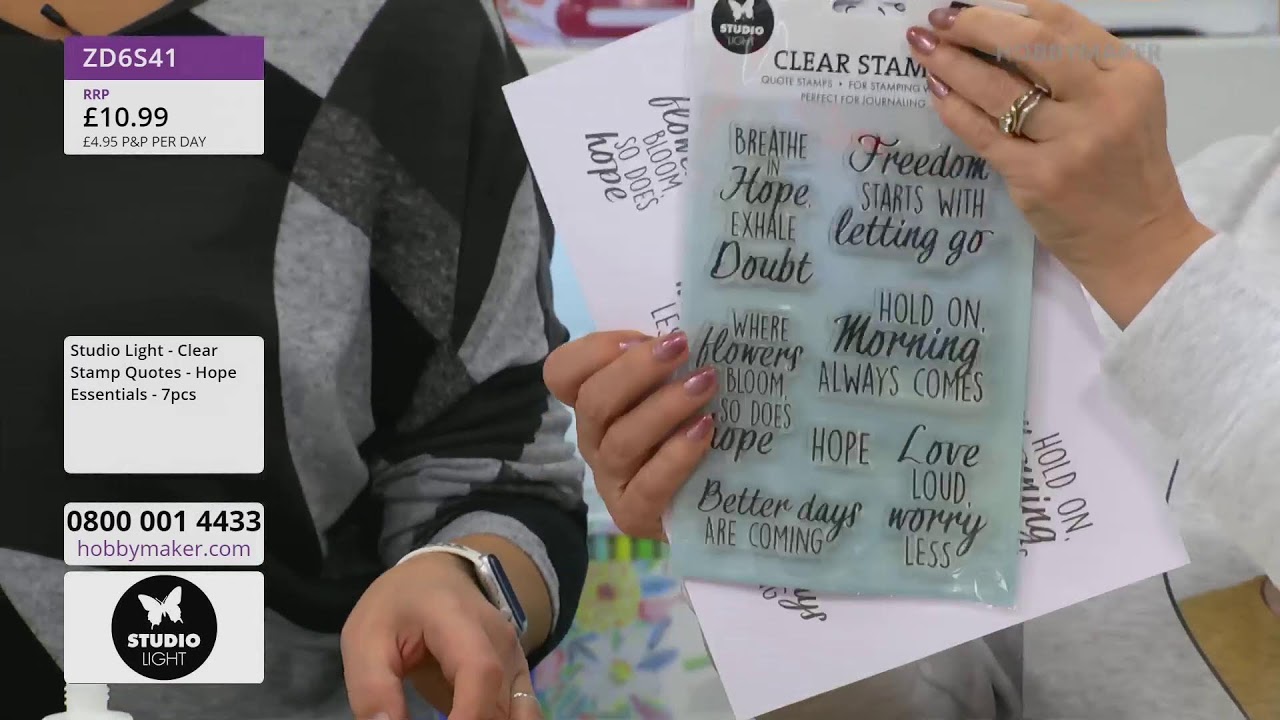 ZD6S41
RRP
£10.99
£4.95 P&P PER DAY
Studio Light - Clear
Stamp Quotes - Hope
Essentials - 7pcs
0800 001 4433
hobbymaker.com
STUDIO
LIGHT
HOBBYMAKER
STUDIO
LIGHT
CLEAR STAM
QUOTE STAMPS • FOR STAMPING
PERFECT FOR JOURNALING
BREATHE
IN
Hope,
EXHALE
Doubt
Freedom
STARTS WITH
letting go
WHERE
flowers
BLOOM,
SO DOES
hope
HOLD ON,
Morning
ALWAYS COMES
HOPE
Love
LOUD,
worry
LESS
Better days
ARE COMING
BLOOM,
SO DOES
hope
LES
HOLD ON,